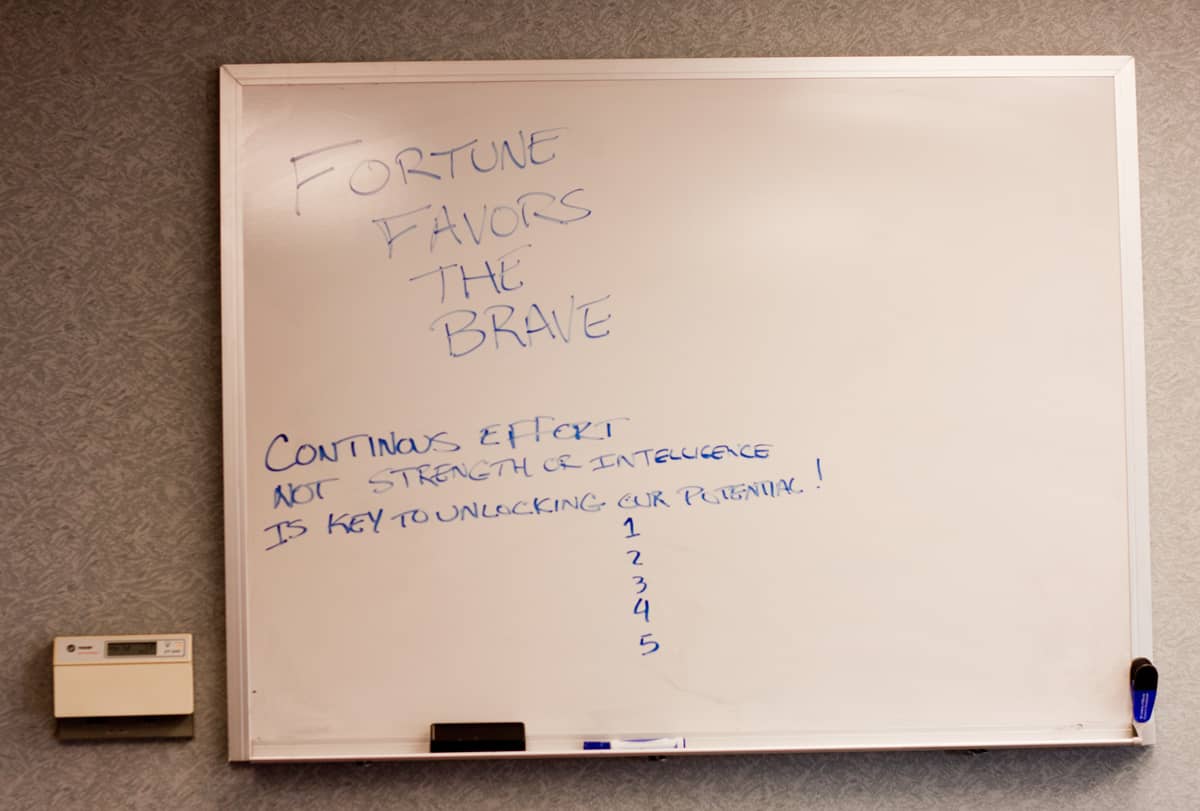 FORTUNE
FAVORS
THE
BRAVE
CONTINOUS EFFORT
NOT STRENGTH OR INTELLIGENCE
IS KEY TO UNLOCKING OUR POTENTIAL!
1
2
3
4
5